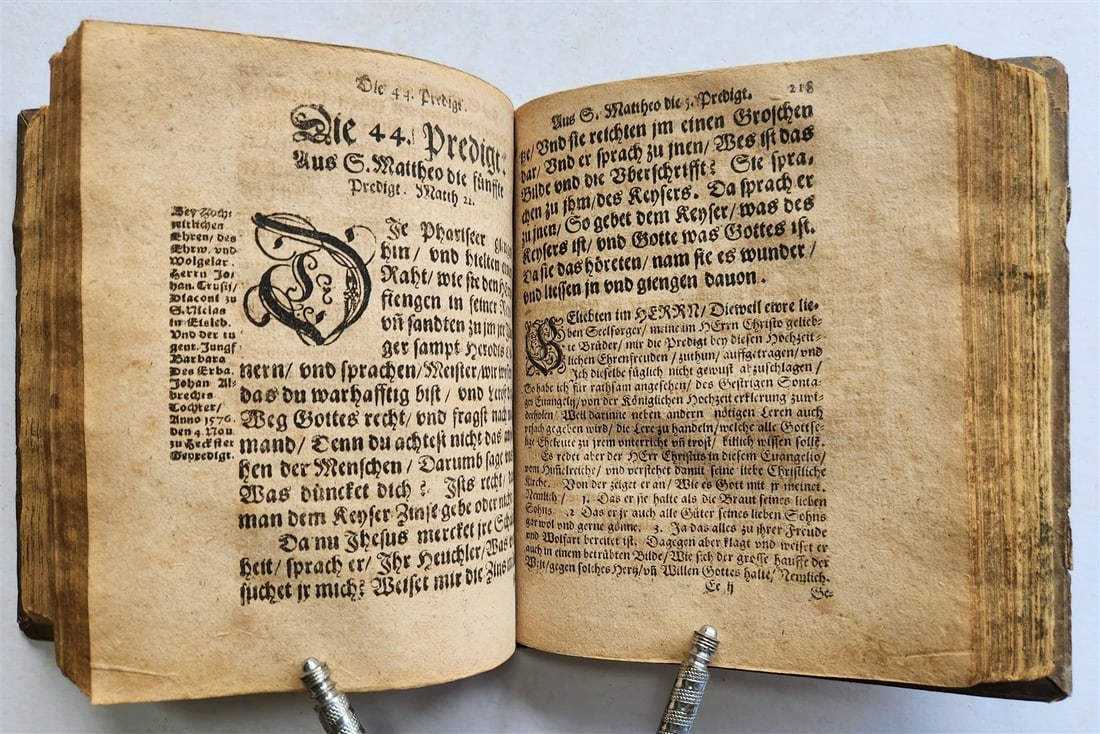 Die 44. Predigt.
Die 44. Predigt.
Aus S. Mattheo die fünffte
Predigt. Matth 22.
Bey Hoch-
zeitlichen
Ehren / des
Ehrw. vnd
Wolgelar.
Herrn Jo-
han. Crusij /
Diaconi zu
S. Niclas
in Eisleb.
Vnd der tu
gent. Jungf
Barbara
Des Erba.
Johan Al-
brechts
Tochter /
Anno 1576.
den 4. Nou.
zu Heckster
Gepredigt.
DJe Phariseer
hin / vnd hielten einen
Raht / wie sie den
fiengen in seiner
vñ sandten zu jm jre
ger sampt Herodis
nern / vnd sprachen / Meister / wir wissen
das du warhafftig bist / vnd Lerest
Weg Gottes recht / vnd fragst nach
mand / Denn du achtest nicht das
hen der Menschen / Darumb sage
Was düncket dich? Ists recht /
man dem Keyser Zinse gebe oder nicht
Da nu Jhesus mercket jre
heit / sprach er / Jhr Heuchler / Was
suchet jr mich? Weiset mir die Zins
Aus S. Mattheo die 5. Predigt. 218
Vnd sie reichten jm einen Groschen
dar / Vnd er sprach zu jnen / Wes ist das
Bilde vnd die Vberschrifft? Sie spra-
chen zu jhm / des Keysers. Da sprach er
zu jnen / So gebet dem Keyser / was des
Keysers ist / vnd Gotte was Gottes ist.
Da sie das höreten / nam sie es wunder /
vnd liessen jn vnd giengen dauon.
GEliebten im HERRN / Dieweil ewre lie-
ben Seelsorger / meine im HErrn Christo gelieb-
te Brüder / mir die Predigt bey diesen Hochzeit-
lichen Ehrenfreuden / zuthun / auffgetragen / vnd
Jch dieselbe füglich nicht gewust abzuschlagen /
So habe ich für rathsam angesehen / des Gestrigen Sonta-
ges Euangelij / von der Königlichen Hochzeit erklerung zuwi-
derholen / Weil darinne neben andern nötigen Leren auch
vrsach gegeben wird / die Lere zu handeln / welche alle Gottse-
lige Eheleute zu jrem vnterricht vñ trost / billich wissen solle.
Es redet aber der HErr Christus in diesem Euangelio /
vom Himelreiche / vnd verstehet damit seine liebe Christliche
Kirche. Von der zeiget er an / Wie es Gott mit jr meinet.
Nemlich / 1. Das er sie halte als die Braut seines lieben
Sohns. 2 Das er jr auch alle Güter seines lieben Sohns
gar wol vnd gerne gönne. 3. Ja das alles zu jhrer Freude
vnd Wolfart bereitet ist. Dagegen aber klagt vnd weiset er
auch in einem betrübten Bilde / Wie sich der grosse hauffe der
Welt / gegen solches Hertz / vñ Willen Gottes halte / Nemlich.
Ee ij
Ge-